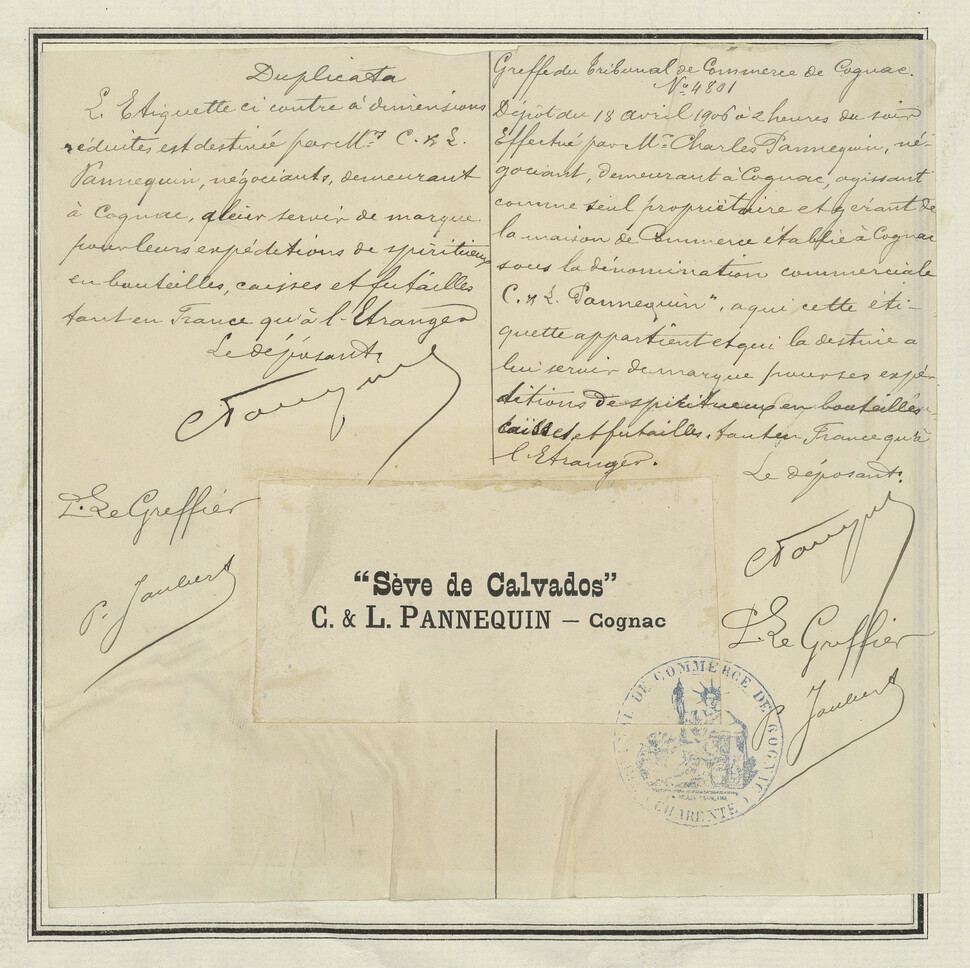 Duplicata
L'Etiquette ci contre à dimensions
réduites est destinée par Mrs C. & L.
Pannequin, négociants, demeurant
à Cognac, à leur servir de marque
pour leurs expéditions de spiritueux
en bouteilles, caisses et futailles
tant en France qu'à l'Etranger
Le déposant:
P. Le Greffier
P. Joubert
Greffe du Tribunal de Commerce de Cognac.
No 4801
Dépôt du 18 avril 1906 à 2 heures du soir
Effectué par Mr Charles Pannequin, né-
gociant, demeurant à Cognac, agissant
comme seul propriétaire et gérant de
la maison de Commerce établie à Cognac
sous la dénomination commerciale
C. & L. Pannequin", a qui cette éti-
quette appartient et qui la destine a
lui servir de marque pour ses expé-
ditions de spiritueux en bouteilles
caisses et futailles, tant en France qu'à
l'Etranger.
Le déposant:
P. Le Greffier
P. Joubert
"Sève de Calvados"
C. & L. PANNEQUIN — Cognac
TRIBUNAL DE COMMERCE DE COGNAC
(CHARENTE)